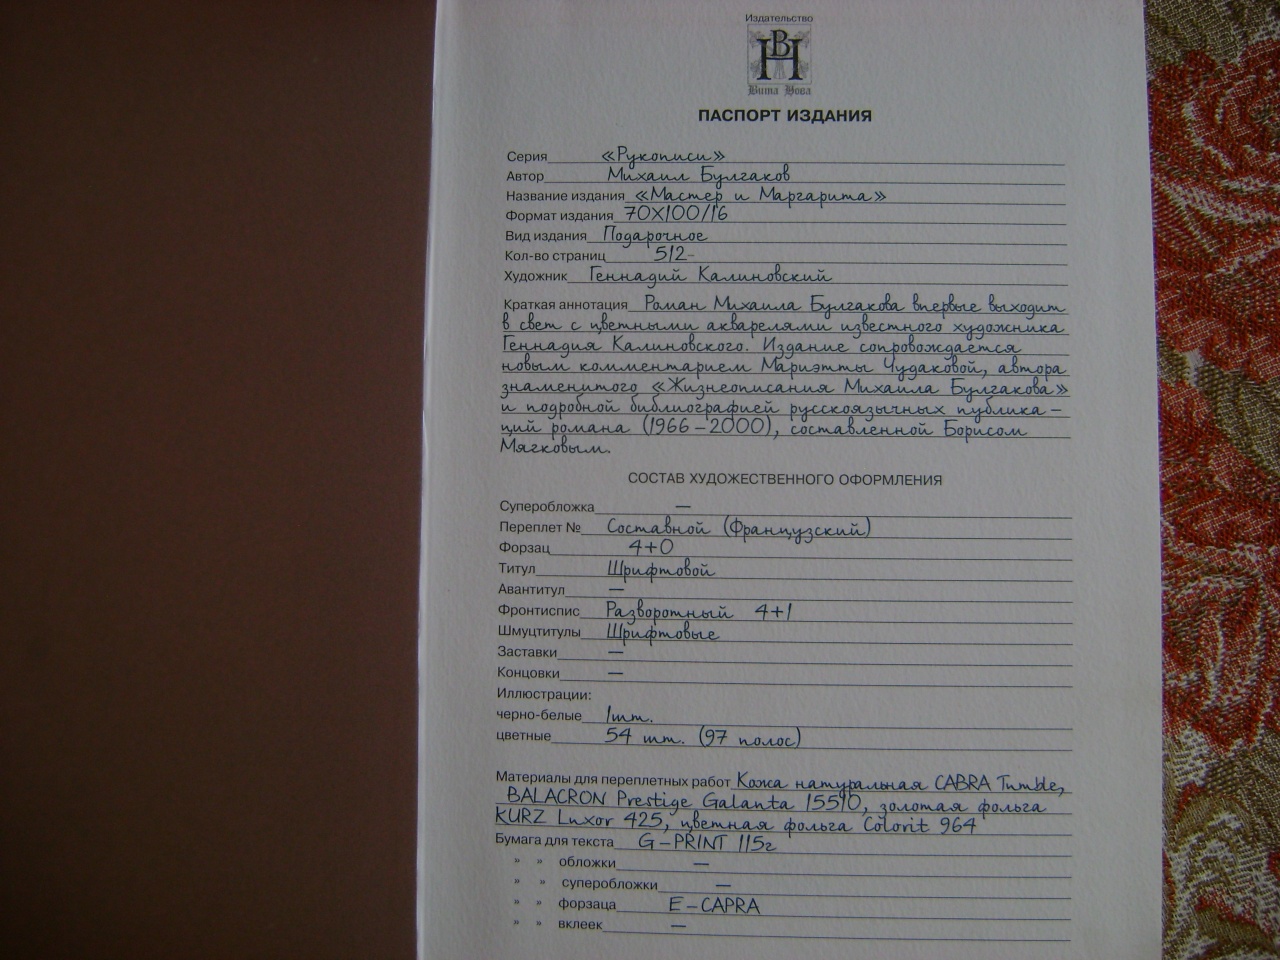 Издательство
Вита Нова
ПАСПОРТ ИЗДАНИЯ
Серия «Рукописи»
Автор Михаил Булгаков
Название издания «Мастер и Маргарита»
Формат издания 70X100/16
Вид издания Подарочное
Кол-во страниц 512-
Художник Геннадий Калиновский
Краткая аннотация Роман Михаила Булгакова впервые выходит
в свет с цветными акварелями известного художника
Геннадия Калиновского. Издание сопровождается
новым комментарием Мариэтты Чудаковой, автора
знаменитого «Жизнеописания Михаила Булгакова»
и подробной библиографией русскоязычных публика –
ций романа (1966 – 2000), составленной Борисом
Мягковым.
СОСТАВ ХУДОЖЕСТВЕННОГО ОФОРМЛЕНИЯ
Суперобложка —
Переплет № Составной (Французский)
Форзац 4+0
Титул Шрифтовой
Авантитул —
Фронтиспис Разворотный 4+1
Шмуцтитулы Шрифтовые
Заставки —
Концовки —
Иллюстрации:
черно-белые 1шт.
цветные 54 шт. (97 полос)
Материалы для переплетных работ Кожа натуральная CABRA Tumble,
BALACRON Prestige Galanta 15510, золотая фольга
KURZ Luxor 425, цветная фольга Colorit 964
Бумага для текста G – PRINT 115г
» » обложки —
» » суперобложки —
» » форзаца E – CAPRA
» » вклеек —